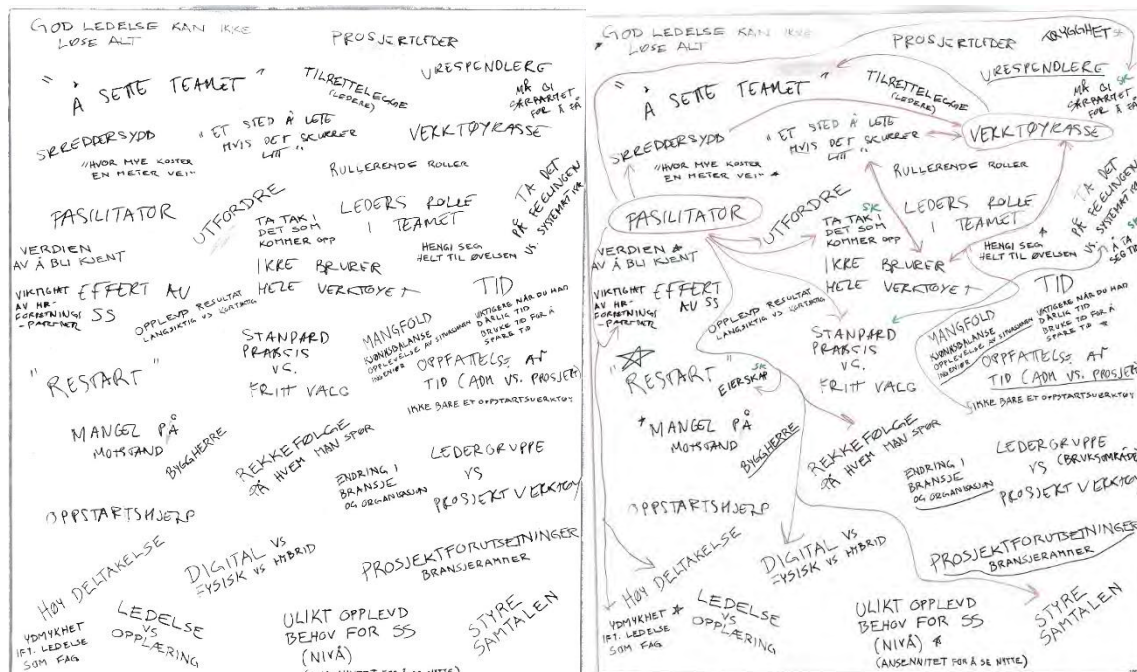 GOD LEDELSE KAN IKKE
LØSE ALT
PROSJEKTLEDER
" Å SETTE TEAMET "
TILRETTELEGGE
(LEDERE)
URESPENDLERE
MÅ GI
SÆRPARTET
FOR Å FÅ
SKREDDERSYDD
" ET STED Å LETE
HVIS DET SKURRER
LITT "
VERKTØYKASSE
"HVOR MYE KOSTER
EN METER VEI"
RULLERENDE ROLLER
FASILITATOR
UTFORDRE
TA TAK I
DET SOM
KOMMER OPP
LEDERS ROLLE
I TEAMET
TA DET
PÅ FEELINGEN
VS. SYSTEMATIKK
VERDIEN
AV Å BLI KJENT
HENGI SEG
HELT TIL ØVELSEN
IKKE BRUKER
HELE VERKTØYET
VIKTIGHET
AV HR-
FORRETNINGS
-PARTNER
EFFEKT AV
SS
OPPLEVD RESULTAT
LANGSIKTIG VS KORTSIKTIG
TID
STANDARD
PRAKSIS
VS.
FRITT VALG
MANGFOLD
KJØNNSBALANSE
OPPLEVELSE AV SITUASJONEN
INGENIØR
VIKTIGERE NÅR DU HAR
DÅRLIG TID
BRUKE TID FOR Å
SPARE TID
" RESTART "
OPPFATTELSE AV
TID (ADM VS. PROSJEKT)
IKKE BARE ET OPPSTARTSVERKTØY
MANGEL PÅ
MOTSTAND
BYGGHERRE
REKKEFØLGE
PÅ HVEM MAN SPØR
ENDRING I
BRANSJE
OG ORGANISASJON
LEDERGRUPPE
VS
PROSJEKT VERKTØY
OPPSTARTSHJELP
HØY DELTAKELSE
DIGITAL VS
FYSISK VS HYBRID
PROSJEKTFORUTSETNINGER
BRANSJERAMMER
YDMYKHET
IFT. LEDELSE
SOM FAG
LEDELSE
VS
OPPLÆRING
ULIKT OPPLEVD
BEHOV FOR SS
(NIVÅ)
(ANSENNITET FOR Å SE NYTTE)
STYRE
SAMTALEN
GOD LEDELSE KAN IKKE
LØSE ALT
PROSJEKTLEDER
TRYGGHET
" Å SETTE TEAMET "
TILRETTELEGGE
(LEDERE)
URESPENDLERE
SK
MÅ GI
SÆRPARTET
FOR Å FÅ
SKREDDERSYDD
" ET STED Å LETE
HVIS DET SKURRER
LITT "
VERKTØYKASSE
"HVOR MYE KOSTER
EN METER VEI"
RULLERENDE ROLLER
FASILITATOR
UTFORDRE
SK
TA TAK I
DET SOM
KOMMER OPP
LEDERS ROLLE
I TEAMET
TA DET
PÅ FEELINGEN
VS. SYSTEMATIKK
Å TA
VERDIEN
AV Å BLI KJENT
HENGI SEG
HELT TIL ØVELSEN
IKKE BRUKER
HELE VERKTØYET
VIKTIGHET
AV HR-
FORRETNINGS
-PARTNER
EFFEKT
AV SS
OPPLEVD RESULTAT
LANGSIKTIG VS KORTSIKTIG
TID
STANDARD
PRAKSIS
VS.
FRITT VALG
MANGFOLD
KJØNNSBALANSE
OPPLEVELSE AV SITUASJONEN
INGENIØR
VIKTIGERE NÅR DU HAR
DÅRLIG TID
BRUKE TID FOR Å
SPARE TID
" RESTART "
SK
EIERSKAP
OPPFATTELSE AV
TID (ADM VS. PROSJEKT)
IKKE BARE ET OPPSTARTSVERKTØY
MANGEL PÅ
MOTSTAND
BYGGHERRE
REKKEFØLGE
PÅ HVEM MAN SPØR
ENDRING I
BRANSJE
OG ORGANISASJON
LEDERGRUPPE
VS (BRUKSOMRÅDE
PROSJEKT VERKTØY
OPPSTARTSHJELP
HØY DELTAKELSE
DIGITAL VS
FYSISK VS HYBRID
PROSJEKTFORUTSETNINGER
BRANSJERAMMER
YDMYKHET
IFT. LEDELSE
SOM FAG
LEDELSE
VS
OPPLÆRING
ULIKT OPPLEVD
BEHOV FOR SS
(NIVÅ)
(ANSENNITET FOR Å SE NYTTE)
STYRE
SAMTALEN